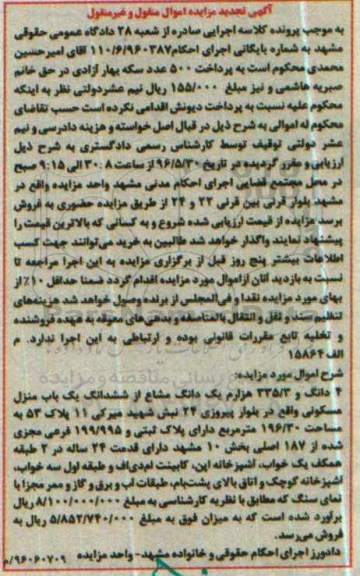 آگهی تجدید مزایده اموال منقول و غیرمنقول
به موجب پرونده کلاسه اجرایی صادره از شعبه ۲۸ دادگاه عمومی حقوقی
مشهد به شماره بایگانی اجرای احکام ۱۱۰/۶/۹۶۰۳۸۷ آقای امیرحسین
محمدی محکوم است به پرداخت ۵۰۰ عدد سکه بهار آزادی در حق خانم
صبریه هاشمی و نیز مبلغ ۱۵۵/۰۰۰ ریال نیم عشردولتی نظر به اینکه
محکوم علیه نسبت به پرداخت دیونش اقدامی نکرده است حسب تقاضای
محکوم له اموالی به شرح ذیل در قبال اصل خواسته و هزینه دادرسی و نیم
عشر دولتی توقیف توسط کارشناس رسمی دادگستری به شرح ذیل
ارزیابی و مقرر گردیده در تاریخ ۹۶/۵/۳۰ از ساعت ۸:۳۰ الی ۹:۱۵ صبح
در محل مجتمع قضایی اجرای احکام مدنی مشهد واحد مزایده واقع در
مشهد بلوار قرنی بین قرنی ۲۲ و ۲۴ از طریق مزایده حضوری به فروش
برسد مزایده از قیمت ارزیابی شده شروع و به کسانی که بالاترین قیمت را
پیشنهاد نمایند واگذار خواهد شد طالبین به خرید می‌توانند جهت کسب
اطلاعات بیشتر پنج روز قبل از برگزاری مزایده به این اجرا مراجعه تا
نسبت به بازدید آنان ازاموال مورد مزایده اقدام گردد ضمنا حداقل ۱۰٪ از
بهای مورد مزایده نقدا و فی‌المجلس از برنده وصول خواهد شد هزینه‌های
تنظیم سند و نقل و انتقال بالمناصفه و بدهی‌های معوقه به عهده فروشنده
و تخلیه تابع مقررات قانونی بوده و ارتباطی به این اجرا ندارد. م
الف ۱۵۸۶۴
شرح اموال مورد مزایده:
۴ دانگ و ۳۳۵/۳ هزارم یک دانگ مشاع از ششدانگ یک باب منزل
مسکونی واقع در بلوار پیروزی ۲۴ نبش شهید میرکی ۱۱ پلاک ۵۳ به
مساحت ۱۹۶/۳۰ مترمربع دارای پلاک ثبتی و ۱۹۹/۹۹۵ فرعی مجزی
شده از ۱۸۷ اصلی بخش ۱۰ مشهد دارای قدمت ۲۴ ساله در ۲ طبقه
همکف یک خواب، آشپزخانه اپن، کابینت ام‌دی‌اف و طبقه اول سه خواب،
آشپزخانه کوچک و اتاق بالای پشت‌بام، طبقات آب و برق و گاز و ممر مجزا با
نمای سنگ که مطابق با نظریه کارشناسی به مبلغ ۸/۱۰۰/۰۰۰/۰۰۰ ریال
برآورد شده است که به میزان فوق به مبلغ ۵/۸۵۲/۷۴۰/۰۰۰ ریال به
فروش می‌رسد.
دادورز اجرای احکام حقوقی و خانواده مشهد- واحد مزایده ۹۶۰۶۰۷۰۹/م